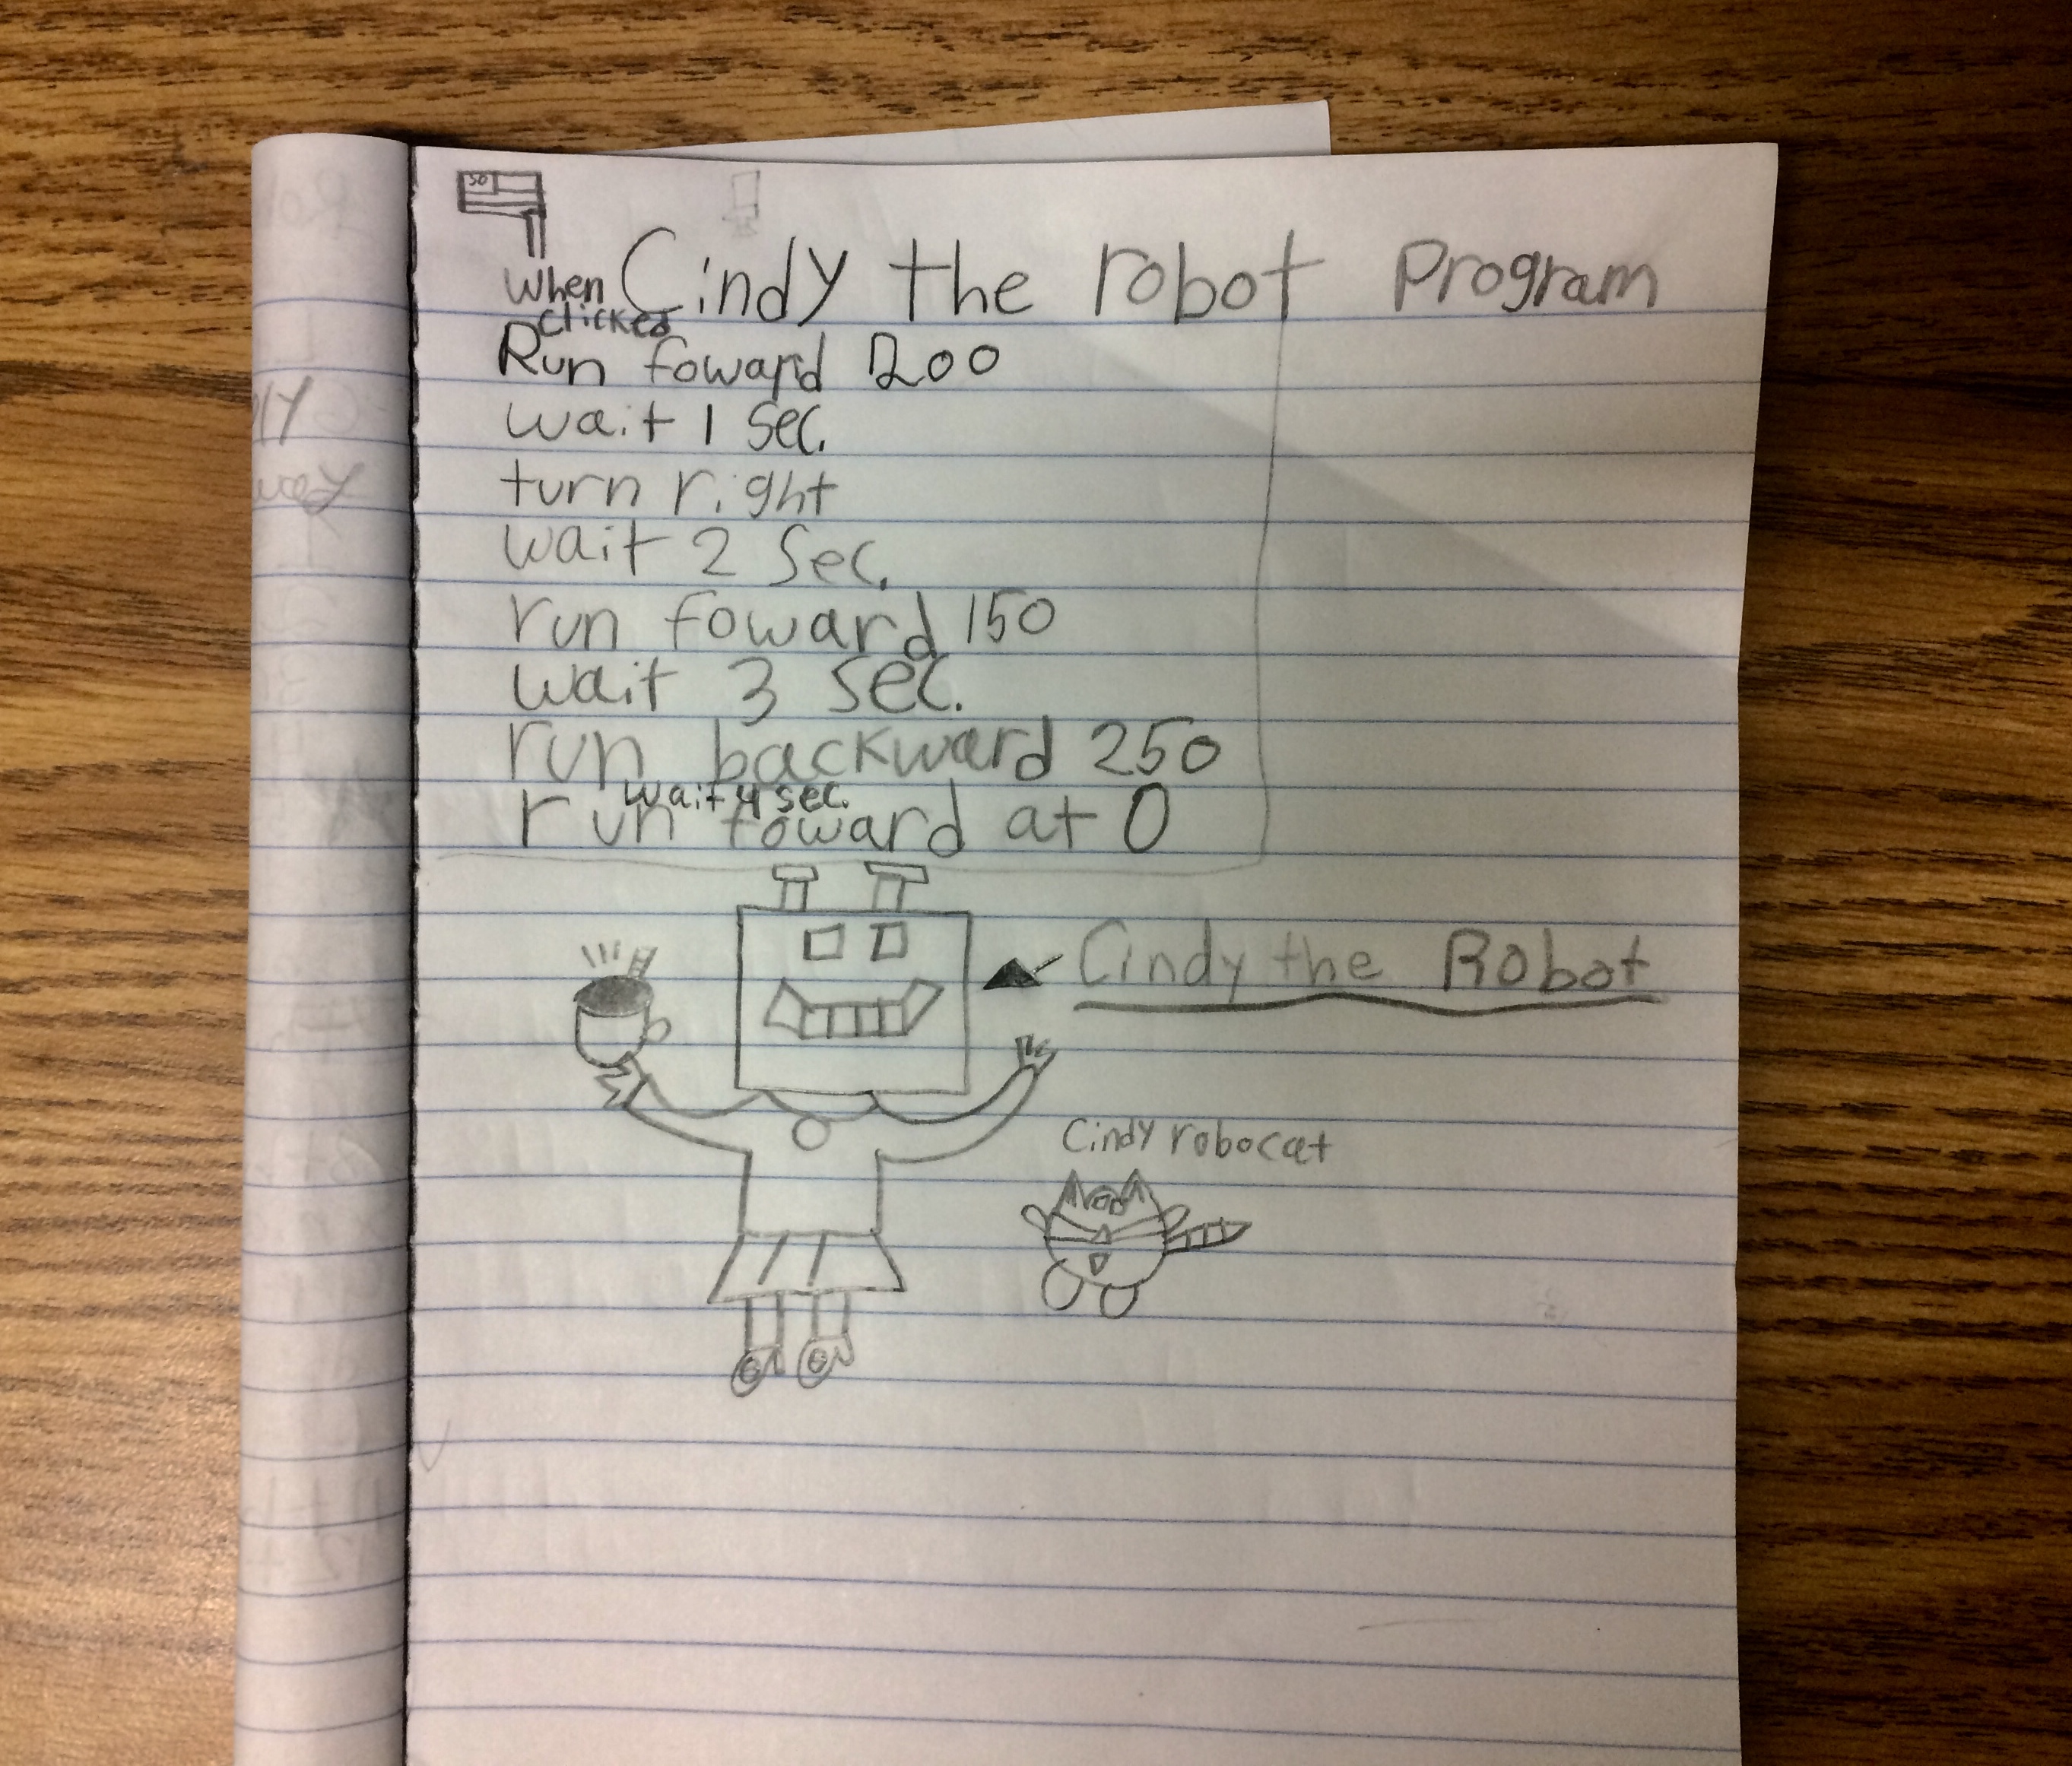 50
Cindy the robot Program
When
clicked
Run foward 200
wait 1 sec.
turn right
wait 2 sec.
run foward 150
wait 3 sec.
run backward 250
wait 4 sec.
run foward at 0
Cindy the Robot
Cindy robocat